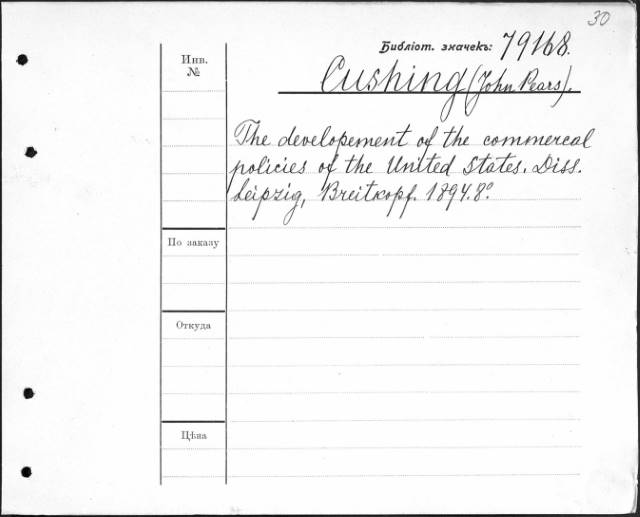 30
Библіот. значекъ: 79168.
Инв.
№
Cushing (John Pears).
The developement of the commercal
policies of the United States. Diss.
Leipzig, Breitkopf. 1894. 8°
По заказу
Откуда
Цѣна